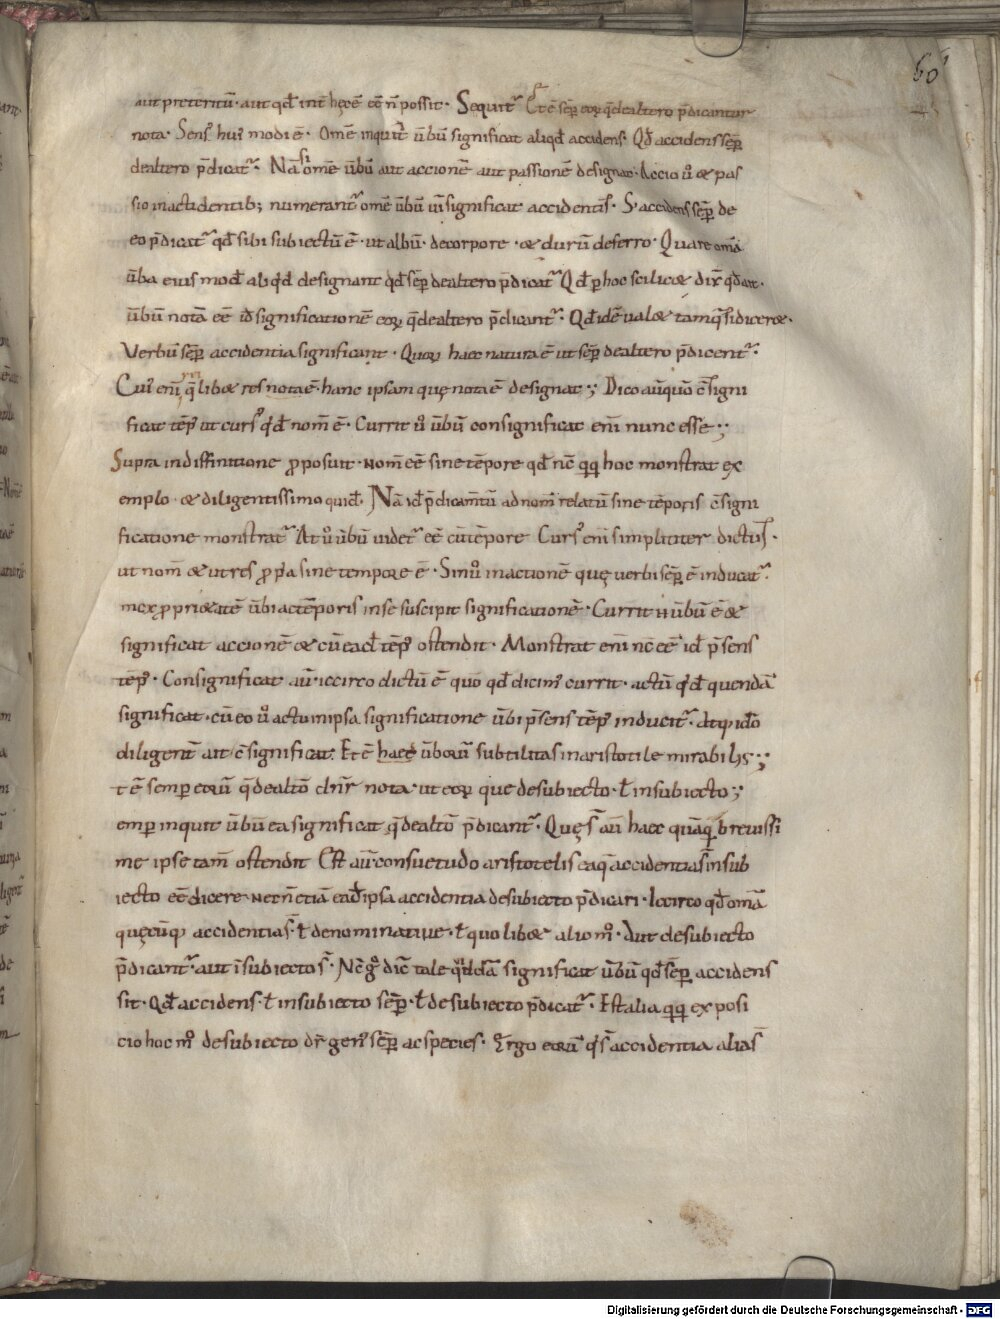 60
aut preteritū· aut qđ int̄ hęc ē eē n̄ possit· Sequit᷑ Et ē sēp eoꝝ q̄ dealtero p̄dicantur
nota· Sens᷒ hui᷒ modi ē· Omē inquit ūbū significat aliqđ accidens· Qđ accidens sēp
dealtero p̄dicat᷑· Nā si omē ūbū aut accionē aut passionē designat· Accio ū & pas
sio inaccidentib; numerant᷑ omē ūbū significat accidentis· S; accidens sēp de
eo p̄dicat᷑ qđ sibi subiectū ē· ut albū· decorpore· & durū deferro· Quare omīa
ūba eius mođ aliqđ designant qđ sēp dealtero p̄dicat᷑ Qđ p hoc scilic&
ūbū notā eē id significationē eoꝝ q̄ dealtero p̄dicant᷑· Qđ idē ual& tamq̄ si dicer&·
Verbū sēp accidentia significant· Quoꝝ haec natura ē ut sēp dealtero p̄dicent᷑·
Cui᷒ enī q̄lib& res nota ē· hanc ipsam quę nota ē designat·; Dico aūt quō c̄signi
ficat tēp᷒ ut curs᷒ qđ nom̄ ē· Currit ū ūbū consignificat enī nunc esse·;
Supra indiffinitione pposuit· nom̄ eē sine tēpore qđ nc̄ qq; hoc monstrat ex
emplo· & diligentissimo quiđ· Nā iđ p̄dicam̄tū ad nom̄ relatū sine tēporis c̄signi
ficatione monstrat᷑ At ū ūbū uidet᷑ eē cū tēpore Curs᷒ enī simpliciter dictus·
ut nom̄ & ut res ppria sine tempore ē· Sin ū inactionē quę uerbi sēp ē inducat᷑·
mox pprietatē ūbi ac tēporis inse suscipit significationē· Currit n̄ ūbū ē &
significat accionē & cū eađ tēp᷒ ostendit· Monstrat enī nc̄ eē iđ p̄sens
tēp᷒· Consignificat aū· iccirco dictū ē quō qđ dicim᷒ currit· actū qđ quendā
significat· cū eo ū actu inipsa significatione ūbi p̄sens tēp᷒ inducit᷑· atq; idō
diligent̄ ait c̄significat· Et ē haec ūborū subtilitas in aristotile mirabilis·;
t ē semper eorū q̄ dealtō dn̄r nota· ut eoꝝ que desubiecto· ł insubiecto·;
emp inquit ūbū ea significat q̄ dealtō p̄dicant᷑· Quę s̄ aū haec quāq; breuissi
me ipse tam̄ ostendit Est aū consuetudo aristotelis eaq̄ accidentia s̄ insub
iecto eē dicere nec n̄ etiā eađ ipsa accidentia desubiecto p̄dicari· Iccirco qđ omīa
quęcūq; accidentia s̄· ł denominatiue· ł quolib& alio m᷒· Aut desubiecto
p̄dicant᷑· aut ī subiecto s̄· Nc̄ g᷒ dic̄ tale significat ūbū qđ sēp accidens
sit· Qđ accidens· ł insubiecto sēp· ł desubiecto p̄dicat᷑· Est alia qq; exposi
cio hoc m᷒ desubiecto dr̄ gen᷒ sēp ac species· Ergo eorū q̄ s̄ accidentia alia s̄
Digitalisierung gefördert durch die Deutsche Forschungsgemeinschaft - DFG